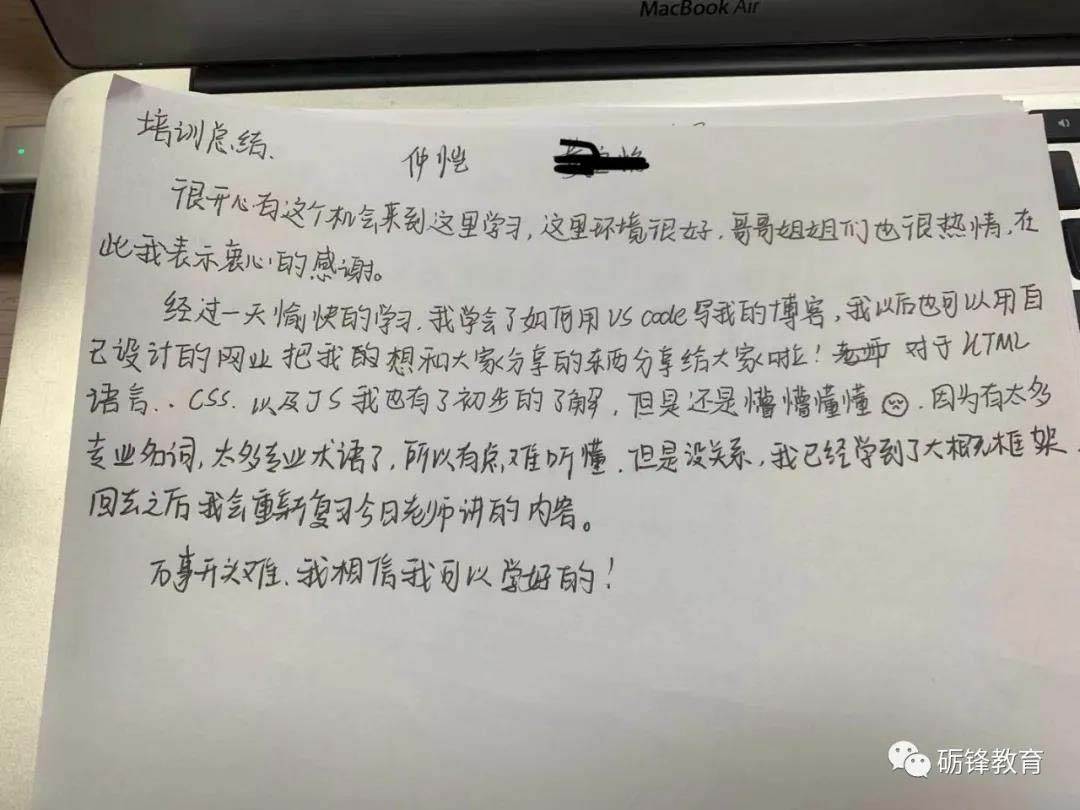 MacBook Air
培训总结.
仲恺
很开心有这个机会来到这里学习,这里环境很好,哥哥姐姐们也很热情,在
此我表示衷心的感谢。
经过一天愉快的学习,我学会了如何用VS code写我的博客,我以后也可以用自
己设计的网业把我的想和大家分享的东西分享给大家啦!老师 对于HTML
语言、CSS、以及JS我也有了初步的了解,但是还是懵懵懂懂。因为有太多
专业名词,太多专业术语了,所以有点难听懂,但是没关系,我已经学到了大概框架,
回去之后我会重新复习今日老师讲的内容。
万事开头难,我相信我可以学好的!
砺锋教育